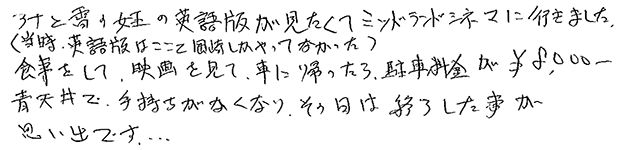 アナと雪の女王の英語版が見たくてミッドランドシネマに行きました。
(当時、英語版はここと岡崎しかやってなかった)
食事をして、映画を見て、車に帰ったら、駐車料金が¥8,000-
青天井で、手持ちがなくなり、その日は終了した事が
思い出です…